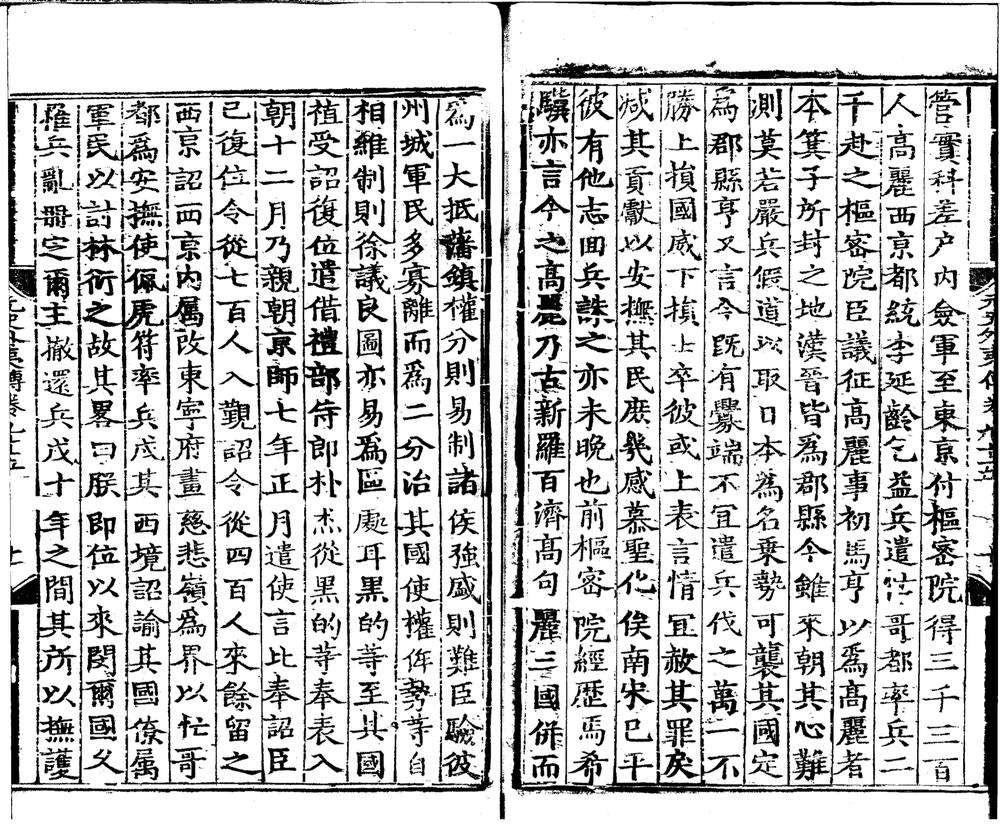 管實科差户内僉軍至東京付樞密院得三千三百
人高麗西京都統李延齡乞益兵遣忙哥都率兵二
千赴之樞密院臣議征高麗事初馬亨以爲高麗者
本箕子所封之地漢晉皆爲郡縣今雖來朝其心難
測莫若嚴兵假道以取日本爲名乗勢可襲其國定
爲郡縣亨又言今既有釁端不宜遣兵伐之萬一不
勝上損國威下損士卒彼或上表言情宜赦其罪戾
减其貢獻以安撫其民庶幾感慕聖化俟南宋已平
彼有他志回兵誅之亦未晚也前樞密院經歴馬希
驥亦言今之高麗乃古新羅百濟高句麗三國併而
爲一大抵藩鎮權分則易制諸侯強盛則難臣驗彼
州城軍民多寡離而爲二分治其國使權侔勢等自
相維制則徐議良圖亦易爲區處耳黑的等至其國
植受詔復位遣借禮部侍郎朴杰從黑的等奉表入
朝十二月乃親朝京師七年正月遣使言比奉詔臣
已復位令從七百人入覲詔令從四百人來餘留之
西京詔西京内属改東寧府畫慈悲嶺爲界以忙哥
都爲安撫使佩虎符率兵戍其西境詔諭其國僚属
軍民以討林衍之故其畧曰朕即位以來閔爾國父
罹兵亂冊定爾主撤還兵戍十年之間其所以撫護